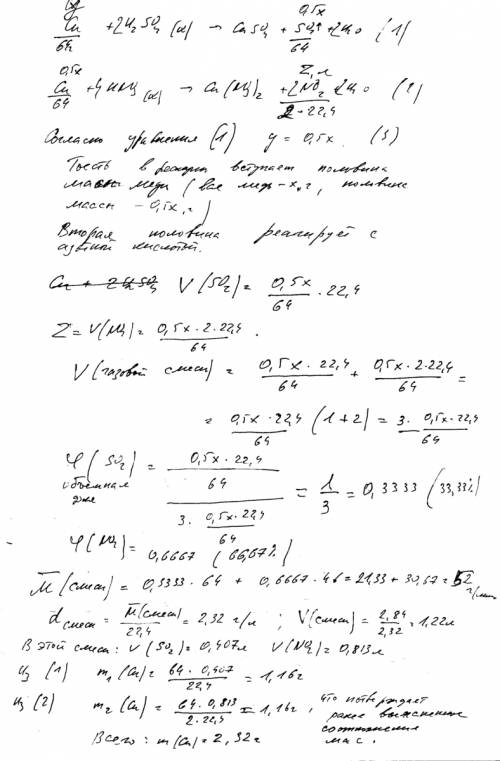 y 0,5x
Cu/64 + 2H₂SO₄ (к) → CuSO₄ + SO₂↑/64 + 2H₂O (1)
0,5x Z, л
Cu/64 + 4HNO₃ (к) → Cu(NO₃)₂ + 2NO₂/2·22,4 + 2H₂O (2)
Согласно уравнения (1) y = 0,5x (3)
То есть в реакцию вступает половина
массы меди (вся медь – x, г, половина
массы – 0,5x, г)
Вторая половина реагирует с
азотной кислотой.
Cu + 2H₂SO₄ V(SO₂) = 0,5x/64 · 22,4
Z = V(NO₂) = 0,5x·2·22,4/64 .
V(газовой смеси) = 0,5x·22,4/64 + 0,5x·2·22,4/64 =
= 0,5x·22,4/64 (1+2) = 3· 0,5x·22,4/64
φ(SO₂) = (0,5x·22,4/64)/(3· 0,5x·22,4/64) = 1/3 = 0,3333 (33,33%)
объемная
доля
φ(NO₂) = 0,6667 (66,67%)
M̄(смеси) = 0,3333·64 + 0,6667·46 = 21,33 + 30,67 = 52 г/моль
d смеси = M̄(смеси)/22,4 = 2,32 г/л ; V(смеси) = 2,84/2,32 = 1,22л
В этой смеси: V(SO₂) = 0,407л V(NO₂) = 0,813л
Из (1) m₁(Cu) = 64·0,407/22,4 = 1,16г
Из (2) m₂(Cu) = 64·0,813/2·22,4 = 1,16г , что подтверждает
ранее выясненные
соотношения
масс.
Всего: m(Cu) = 2,32г